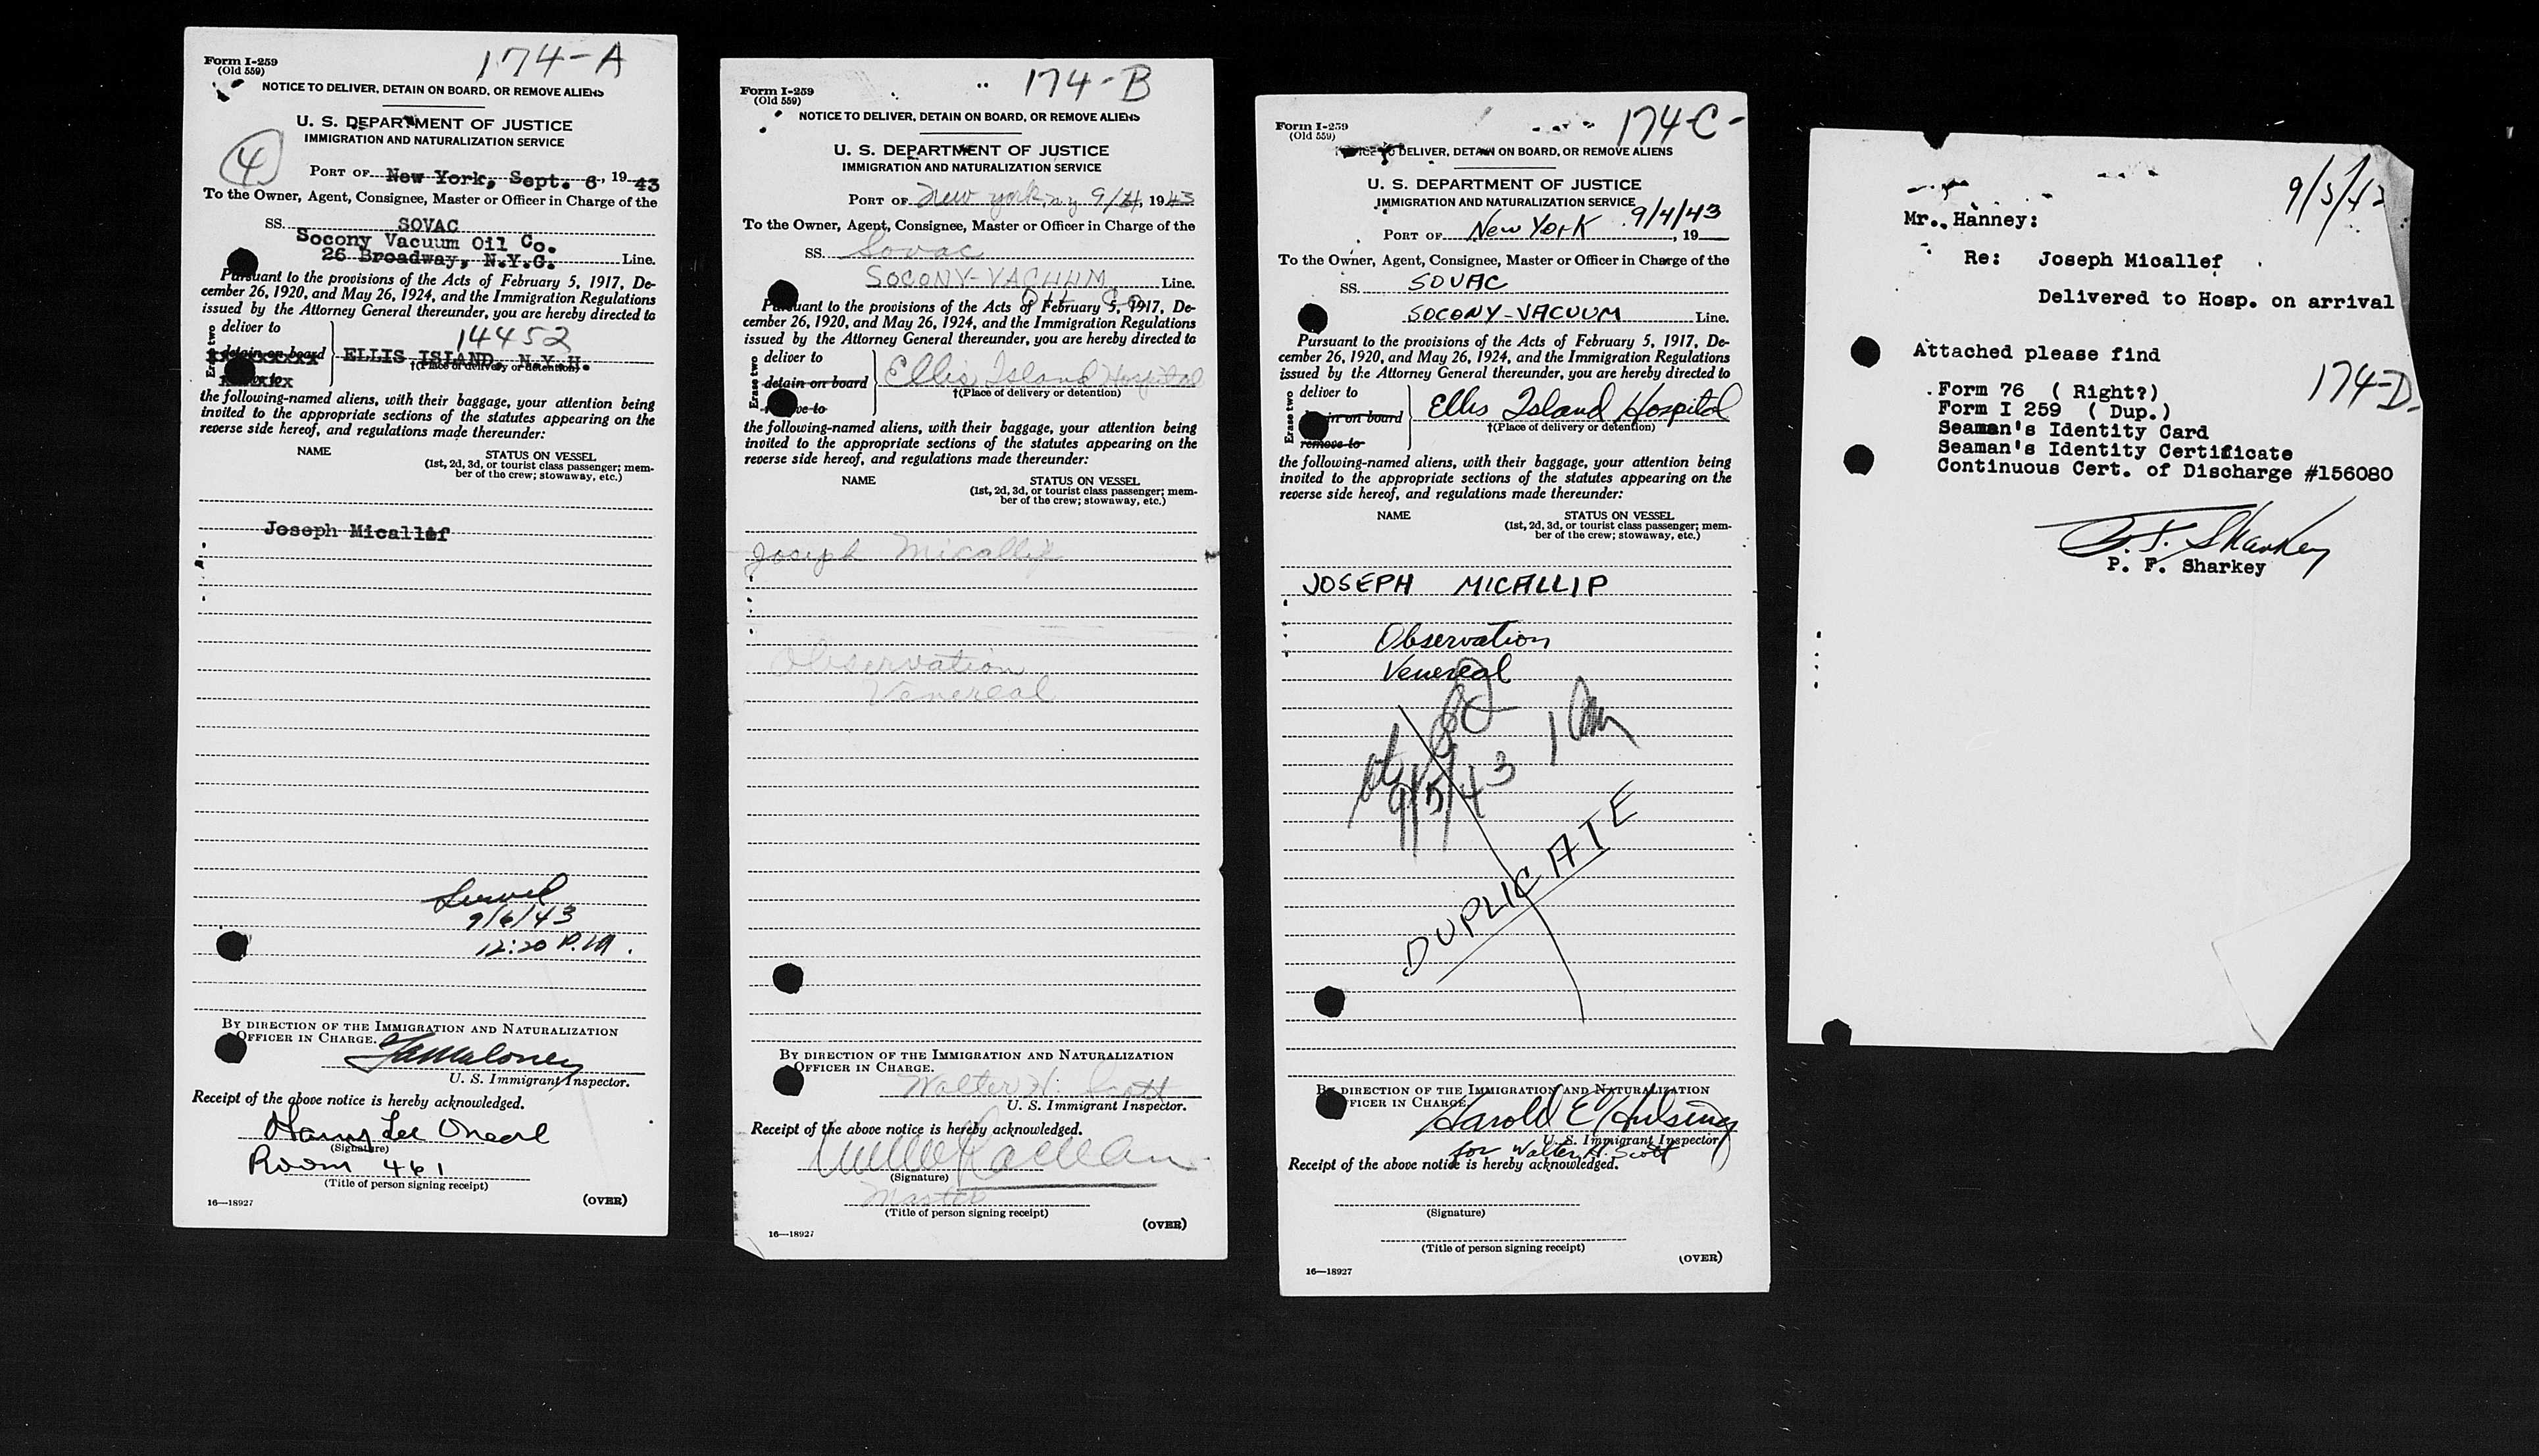 174-A
Form I-259
(Old 559)
NOTICE TO DELIVER, DETAIN ON BOARD, OR REMOVE ALIENS
U. S. DEPARTMENT OF JUSTICE
IMMIGRATION AND NATURALIZATION SERVICE
4
PORT OF New York, Sept. 6, 1943
To the Owner, Agent, Consignee, Master or Officer in Charge of the
SS. SOVAC
Socony Vacuum Oil Co.
26 Broadway, N.Y.C. Line.
Pursuant to the provisions of the Acts of February 5, 1917, De-
cember 26, 1920, and May 26, 1924, and the Immigration Regulations
issued by the Attorney General thereunder, you are hereby directed to
14452
Erase two
deliver to
detain on board ELLIS ISLAND, N.Y.H.
†(Place of delivery or detention)
the following-named aliens, with their baggage, your attention being
invited to the appropriate sections of the statutes appearing on the
reverse side hereof, and regulations made thereunder:
NAME STATUS ON VESSEL
(1st, 2d, 3d, or tourist class passenger; mem-
ber of the crew; stowaway, etc.)
Joseph Micallef
Served
9/6/43
12:20 P.M.
BY DIRECTION OF THE IMMIGRATION AND NATURALIZATION
OFFICER IN CHARGE.
U. S. Immigrant Inspector.
Receipt of the above notice is hereby acknowledged.
Harry Lee Oneal
(Signature)
Room 461
(Title of person signing receipt)
16—18927 (OVER)
174-B
Form I-259
(Old 559)
NOTICE TO DELIVER, DETAIN ON BOARD, OR REMOVE ALIENS
U. S. DEPARTMENT OF JUSTICE
IMMIGRATION AND NATURALIZATION SERVICE
PORT OF New York, ny 9/4, 1943
To the Owner, Agent, Consignee, Master or Officer in Charge of the
SS. Sovac
SOCONY-VACUUM Line.
Oil Co.
Pursuant to the provisions of the Acts of February 5, 1917, De-
cember 26, 1920, and May 26, 1924, and the Immigration Regulations
issued by the Attorney General thereunder, you are hereby directed to
Erase two
deliver to
detain on board Ellis Island Hospital
†(Place of delivery or detention)
remove to
the following-named aliens, with their baggage, your attention being
invited to the appropriate sections of the statutes appearing on the
reverse side hereof, and regulations made thereunder:
NAME STATUS ON VESSEL
(1st, 2d, 3d, or tourist class passenger; mem-
ber of the crew; stowaway, etc.)
Joseph Micallip
Observation
Venereal
BY DIRECTION OF THE IMMIGRATION AND NATURALIZATION
OFFICER IN CHARGE.
Walter H. Scott
U. S. Immigrant Inspector.
Receipt of the above notice is hereby acknowledged.
(Signature)
Master
(Title of person signing receipt)
(OVER)
16—18927
174-C-
Form I-259
(Old 559)
NOTICE TO DELIVER, DETAIN ON BOARD, OR REMOVE ALIENS
U. S. DEPARTMENT OF JUSTICE
IMMIGRATION AND NATURALIZATION SERVICE
PORT OF New York 9/4/43, 19
To the Owner, Agent, Consignee, Master or Officer in Charge of the
SS. SOVAC
SOCONY-VACUUM Line.
Pursuant to the provisions of the Acts of February 5, 1917, De-
cember 26, 1920, and May 26, 1924, and the Immigration Regulations
issued by the Attorney General thereunder, you are hereby directed to
Erase two
deliver to
detain on board Ellis Island Hospital
†(Place of delivery or detention)
remove to
the following-named aliens, with their baggage, your attention being
invited to the appropriate sections of the statutes appearing on the
reverse side hereof, and regulations made thereunder:
NAME STATUS ON VESSEL
(1st, 2d, 3d, or tourist class passenger; mem-
ber of the crew; stowaway, etc.)
JOSEPH MICALLIP
Observation
Venereal
9/5/43 1 am
DUPLICATE
BY DIRECTION OF THE IMMIGRATION AND NATURALIZATION
OFFICER IN CHARGE.
Harold E.
U. S. Immigrant Inspector
for Walter H. Scott
Receipt of the above notice is hereby acknowledged.
(Signature)
(Title of person signing receipt)
(OVER)
16—18927
9/5/43
Mr. Hanney:
Re: Joseph Micallef
Delivered to Hosp. on arrival
Attached please find
174-D.
Form 76 ( Right?)
Form I 259 ( Dup.)
Seaman's Identity Card
Seaman's Identity Certificate
Continuous Cert. of Discharge #156080
P. F. Sharkey
P. F. Sharkey